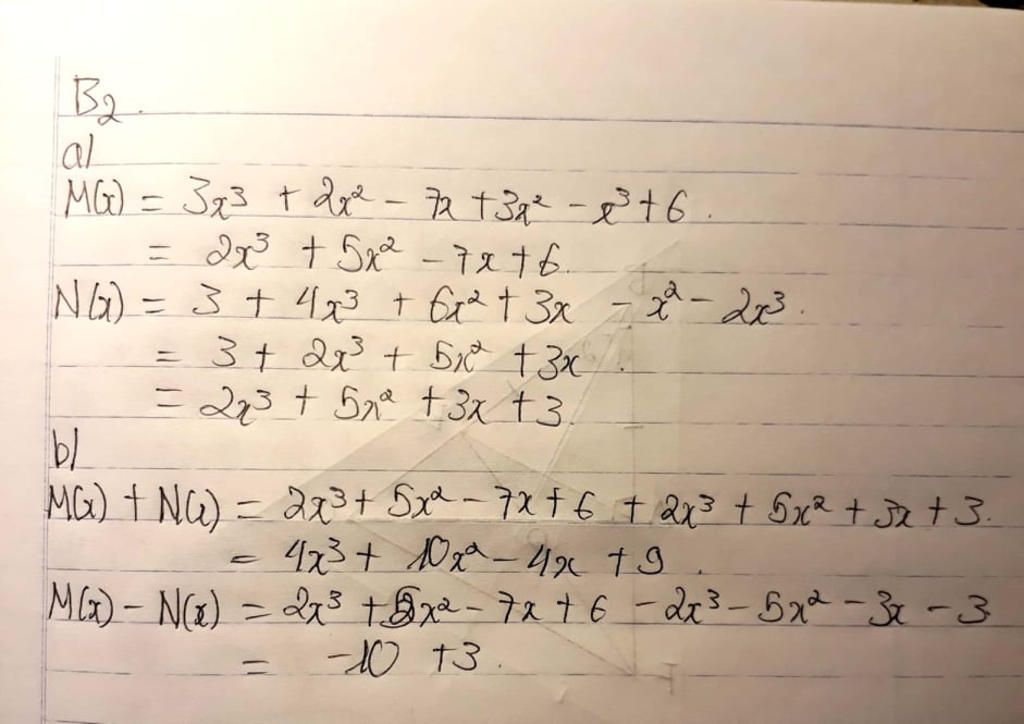 B2.
a)
M(x) = 3x³ + 2x² - 7x + 3x² - x³ + 6.
= 2x³ + 5x² - 7x + 6.
N(x) = 3 + 4x³ + 6x² + 3x - x² - 2x³.
= 3 + 2x³ + 5x² + 3x.
= 2x³ + 5x² + 3x + 3.
b)
M(x) + N(x) = 2x³ + 5x² - 7x + 6 + 2x³ + 5x² + 3x + 3.
= 4x³ + 10x² - 4x + 9.
M(x) - N(x) = 2x³ + 5x² - 7x + 6 - 2x³ - 5x² - 3x - 3
= -10 + 3.